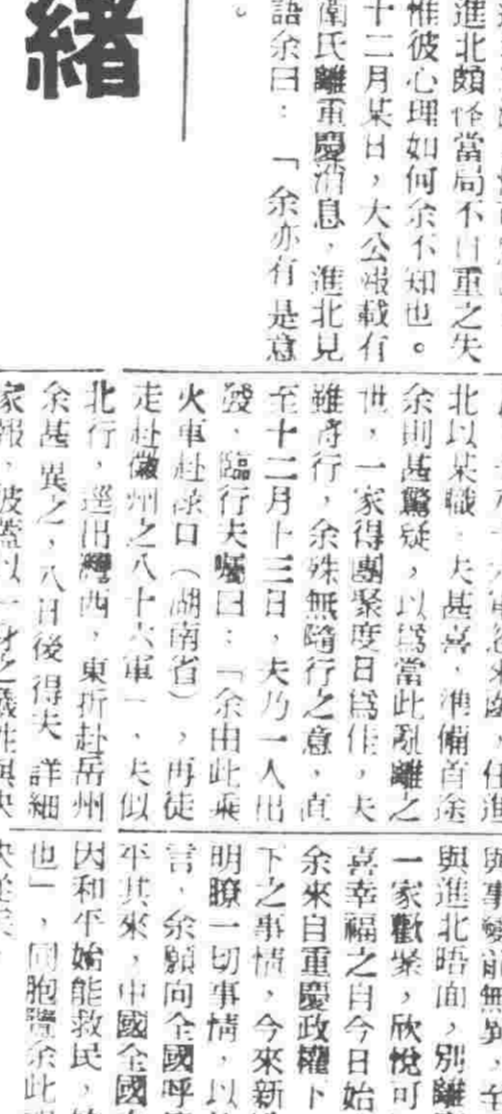 緒
進北頗怪當局不自重之失
惟彼心理如何余不知也。
十二月某日，大公報載有
衛氏離重慶消息，進北見
語余曰：「余亦有是意
。
北以某職，夫甚喜，準備首途
余則甚驚疑，以爲當此亂離之
世，一家得團聚度日爲佳，夫
雖將行，余殊無隨行之意，直
至十二月十三日，夫乃一人出
發，臨行夫囑曰：「余由此乘
火車赴淥口（湖南省），再徒
走赴徽州之八十六軍」，夫似
北行，逕出灣西，東折赴岳州
余甚異之，八日後得夫詳細
家報，彼蓋以一身之犧牲與決
與事變前無異，
與進北晤面，別離
一家歡聚，欣悅可
喜幸福之自今日始
余來自重慶政權下
下之事情，今來新
明瞭一切事情，以
言，余願向全國呼
平其來，中國全國
因和平始能救民，
也」，同胞覽余此